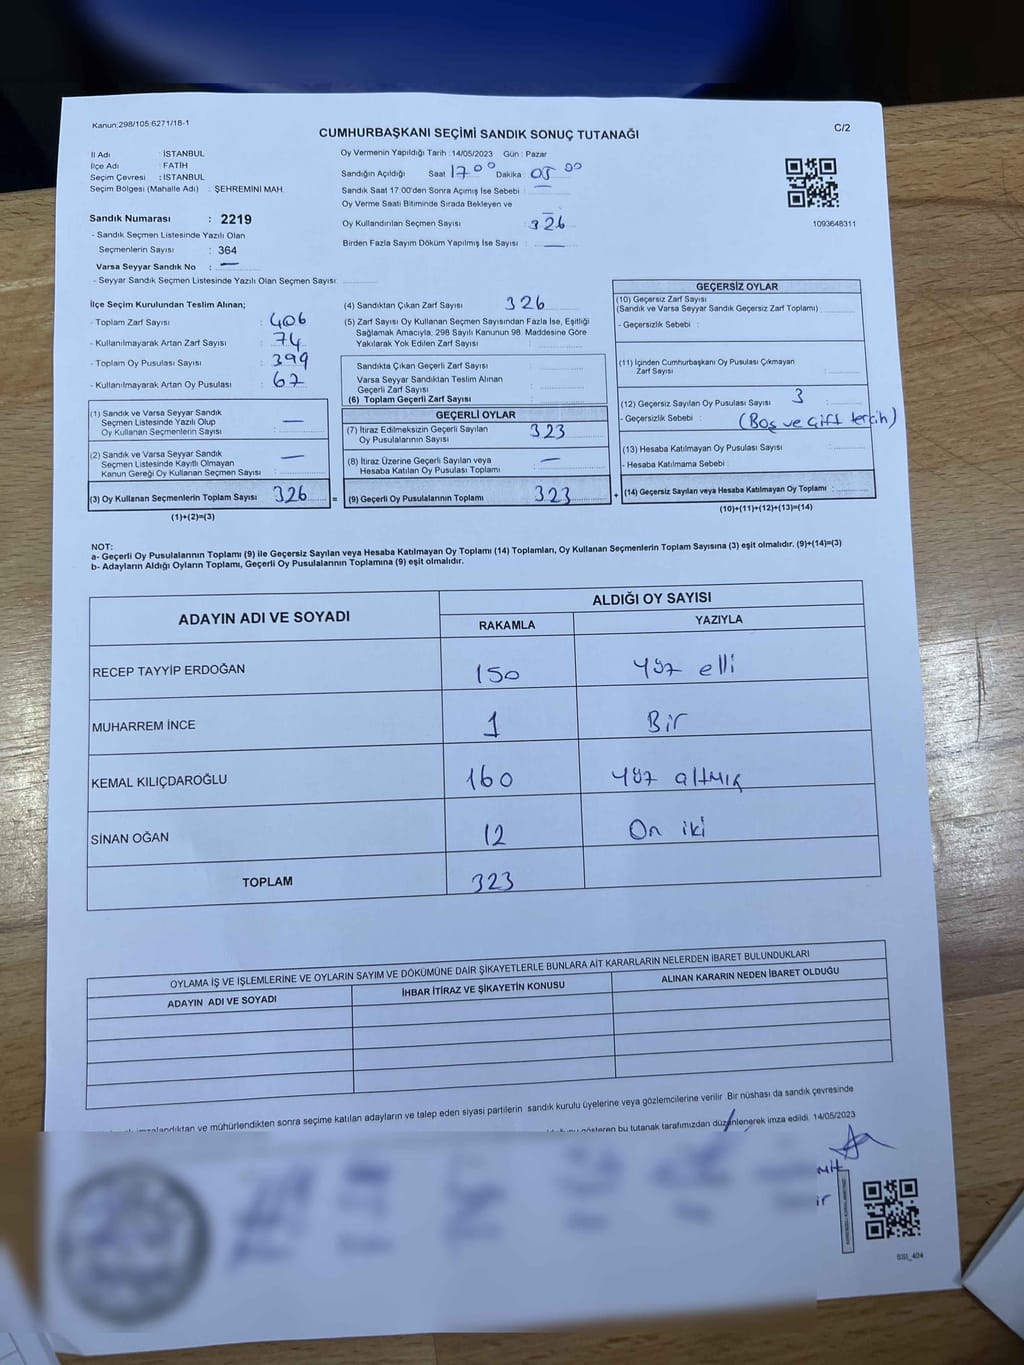 Kanun:298/105,6271/18-1
C/2
CUMHURBAŞKANI SEÇİMİ SANDIK SONUÇ TUTANAĞI
İl Adı : İSTANBUL
İlçe Adı : FATİH
Seçim Çevresi : İSTANBUL
Seçim Bölgesi (Mahalle Adı) : ŞEHREMİNİ MAH.
Sandık Numarası : 2219
- Sandık Seçmen Listesinde Yazılı Olan
Seçmenlerin Sayısı : 364
Varsa Seyyar Sandık No : —
- Seyyar Sandık Seçmen Listesinde Yazılı Olan Seçmen Sayısı:
Oy Vermenin Yapıldığı Tarih : 14/05/2023 Gün : Pazar
Sandığın Açıldığı Saat 17 00 Dakika 05 00
Sandık Saat 17.00'den Sonra Açmış İse Sebebi : —
Oy Verme Saati Bitiminde Sırada Bekleyen ve
Oy Kullandırılan Seçmen Sayısı : —
326
Birden Fazla Sayım Döküm Yapılmış İse Sayısı : —
1093648311
İlçe Seçim Kurulundan Teslim Alınan;
- Toplam Zarf Sayısı : 406
- Kullanılmayarak Artan Zarf Sayısı : 74
- Toplam Oy Pusulası Sayısı : 399
- Kullanılmayarak Artan Oy Pusulası : 67
(1) Sandık ve Varsa Seyyar Sandık
Seçmen Listesinde Yazılı Olup
Oy Kullanan Seçmenlerin Sayısı : —
(2) Sandık ve Varsa Seyyar Sandık
Seçmen Listesinde Kayıtlı Olmayan
Kanun Gereği Oy Kullanan Seçmen Sayısı : —
(3) Oy Kullanan Seçmenlerin Toplam Sayısı 326 =
(1)+(2)=(3)
(4) Sandıktan Çıkan Zarf Sayısı 326
(5) Zarf Sayısı Oy Kullanan Seçmen Sayısından Fazla İse, Eşitliği
Sağlamak Amacıyla; 298 Sayılı Kanunun 98. Maddesine Göre
Yakılarak Yok Edilen Zarf Sayısı :
Sandıkta Çıkan Geçerli Zarf Sayısı :
Varsa Seyyar Sandıktan Teslim Alınan
Geçerli Zarf Sayısı :
(6) Toplam Geçerli Zarf Sayısı :
GEÇERLİ OYLAR
(7) İtiraz Edilmeksizin Geçerli Sayılan
Oy Pusulalarının Sayısı : 323
(8) İtiraz Üzerine Geçerli Sayılan veya
Hesaba Katılan Oy Pusulası Toplamı : —
(9) Geçerli Oy Pusulalarının Toplamı : 323 +
GEÇERSİZ OYLAR
(10) Geçersiz Zarf Sayısı
(Sandık ve Varsa Seyyar Sandık Geçersiz Zarf Toplamı) :
- Geçersizlik Sebebi :
(11) İçinden Cumhurbaşkanı Oy Pusulası Çıkmayan
Zarf Sayısı :
(12) Geçersiz Sayılan Oy Pusulası Sayısı : 3
- Geçersizlik Sebebi : (Boş ve Çift tercih)
(13) Hesaba Katılmayan Oy Pusulası Sayısı :
- Hesaba Katılmama Sebebi :
(14) Geçersiz Sayılan veya Hesaba Katılmayan Oy Toplamı :
(10)+(11)+(12)+(13)=(14)
NOT:
a- Geçerli Oy Pusulalarının Toplamı (9) ile Geçersiz Sayılan veya Hesaba Katılmayan Oy Toplamı (14) Toplamları, Oy Kullanan Seçmenlerin Toplam Sayısına (3) eşit olmalıdır. (9)+(14)=(3)
b- Adayların Aldığı Oyların Toplamı, Geçerli Oy Pusulalarının Toplamına (9) eşit olmalıdır.
ADAYIN ADI VE SOYADI
ALDIĞI OY SAYISI
RAKAMLA YAZIYLA
RECEP TAYYİP ERDOĞAN 150 Yüz elli
MUHARREM İNCE 1 Bir
KEMAL KILIÇDAROĞLU 160 Yüz altmış
SİNAN OĞAN 12 On iki
TOPLAM 323
OYLAMA İŞ VE İŞLEMLERİNE VE OYLARIN SAYIM VE DÖKÜMÜNE DAİR ŞİKAYETLERLE BUNLARA AİT KARARLARIN NELERDEN İBARET BULUNDUKLARI
ADAYIN ADI VE SOYADI İHBAR İTİRAZ VE ŞİKAYETİN KONUSU ALINAN KARARIN NEDEN İBARET OLDUĞU
imzalandıktan ve mühürlendikten sonra seçime katılan adayların ve talep eden siyasi partilerin sandık kurulu üyelerine veya gözlemcilerine verilir. Bir nüshası da sandık çevresinde
gösteren bu tutanak tarafımızdan düzenlenerek imza edildi. 14/05/2023
SSI_404